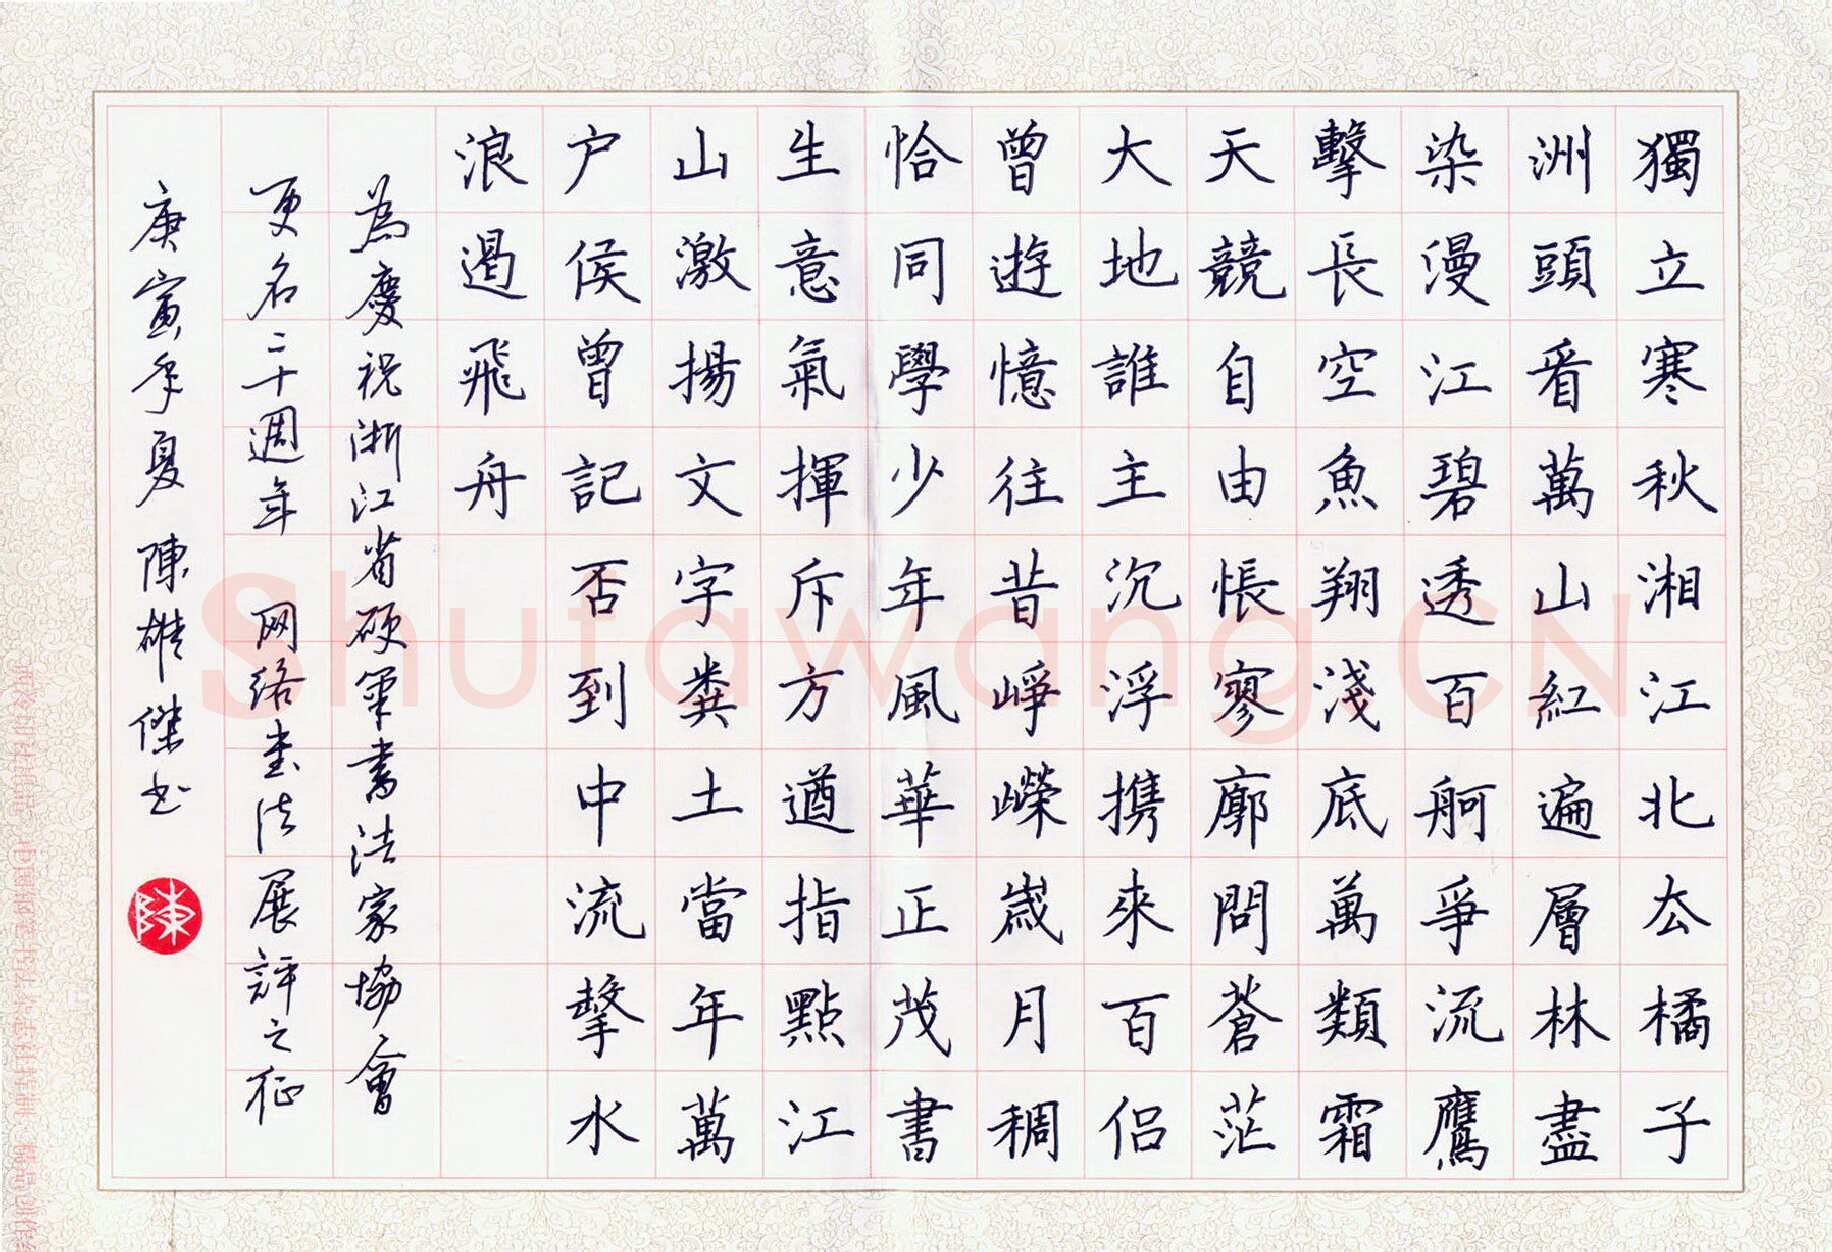 獨立寒秋湘江北去橘子
洲頭看萬山紅遍層林盡
染漫江碧透百舸爭流鷹
擊長空魚翔淺底萬類霜
天競自由悵寥廓問蒼茫
大地誰主沉浮攜來百侶
曾遊憶往昔崢嶸歲月稠
恰同學少年風華正茂書
生意氣揮斥方遒指點江
山激揚文字糞土當年萬
户侯曾記否到中流擊水
浪遏飛舟
為慶祝浙江省硬筆書法家協會
更名二十週年 网络書法展評之征
庚寅年夏 陳雄傑书
陳
Shufawang.CN